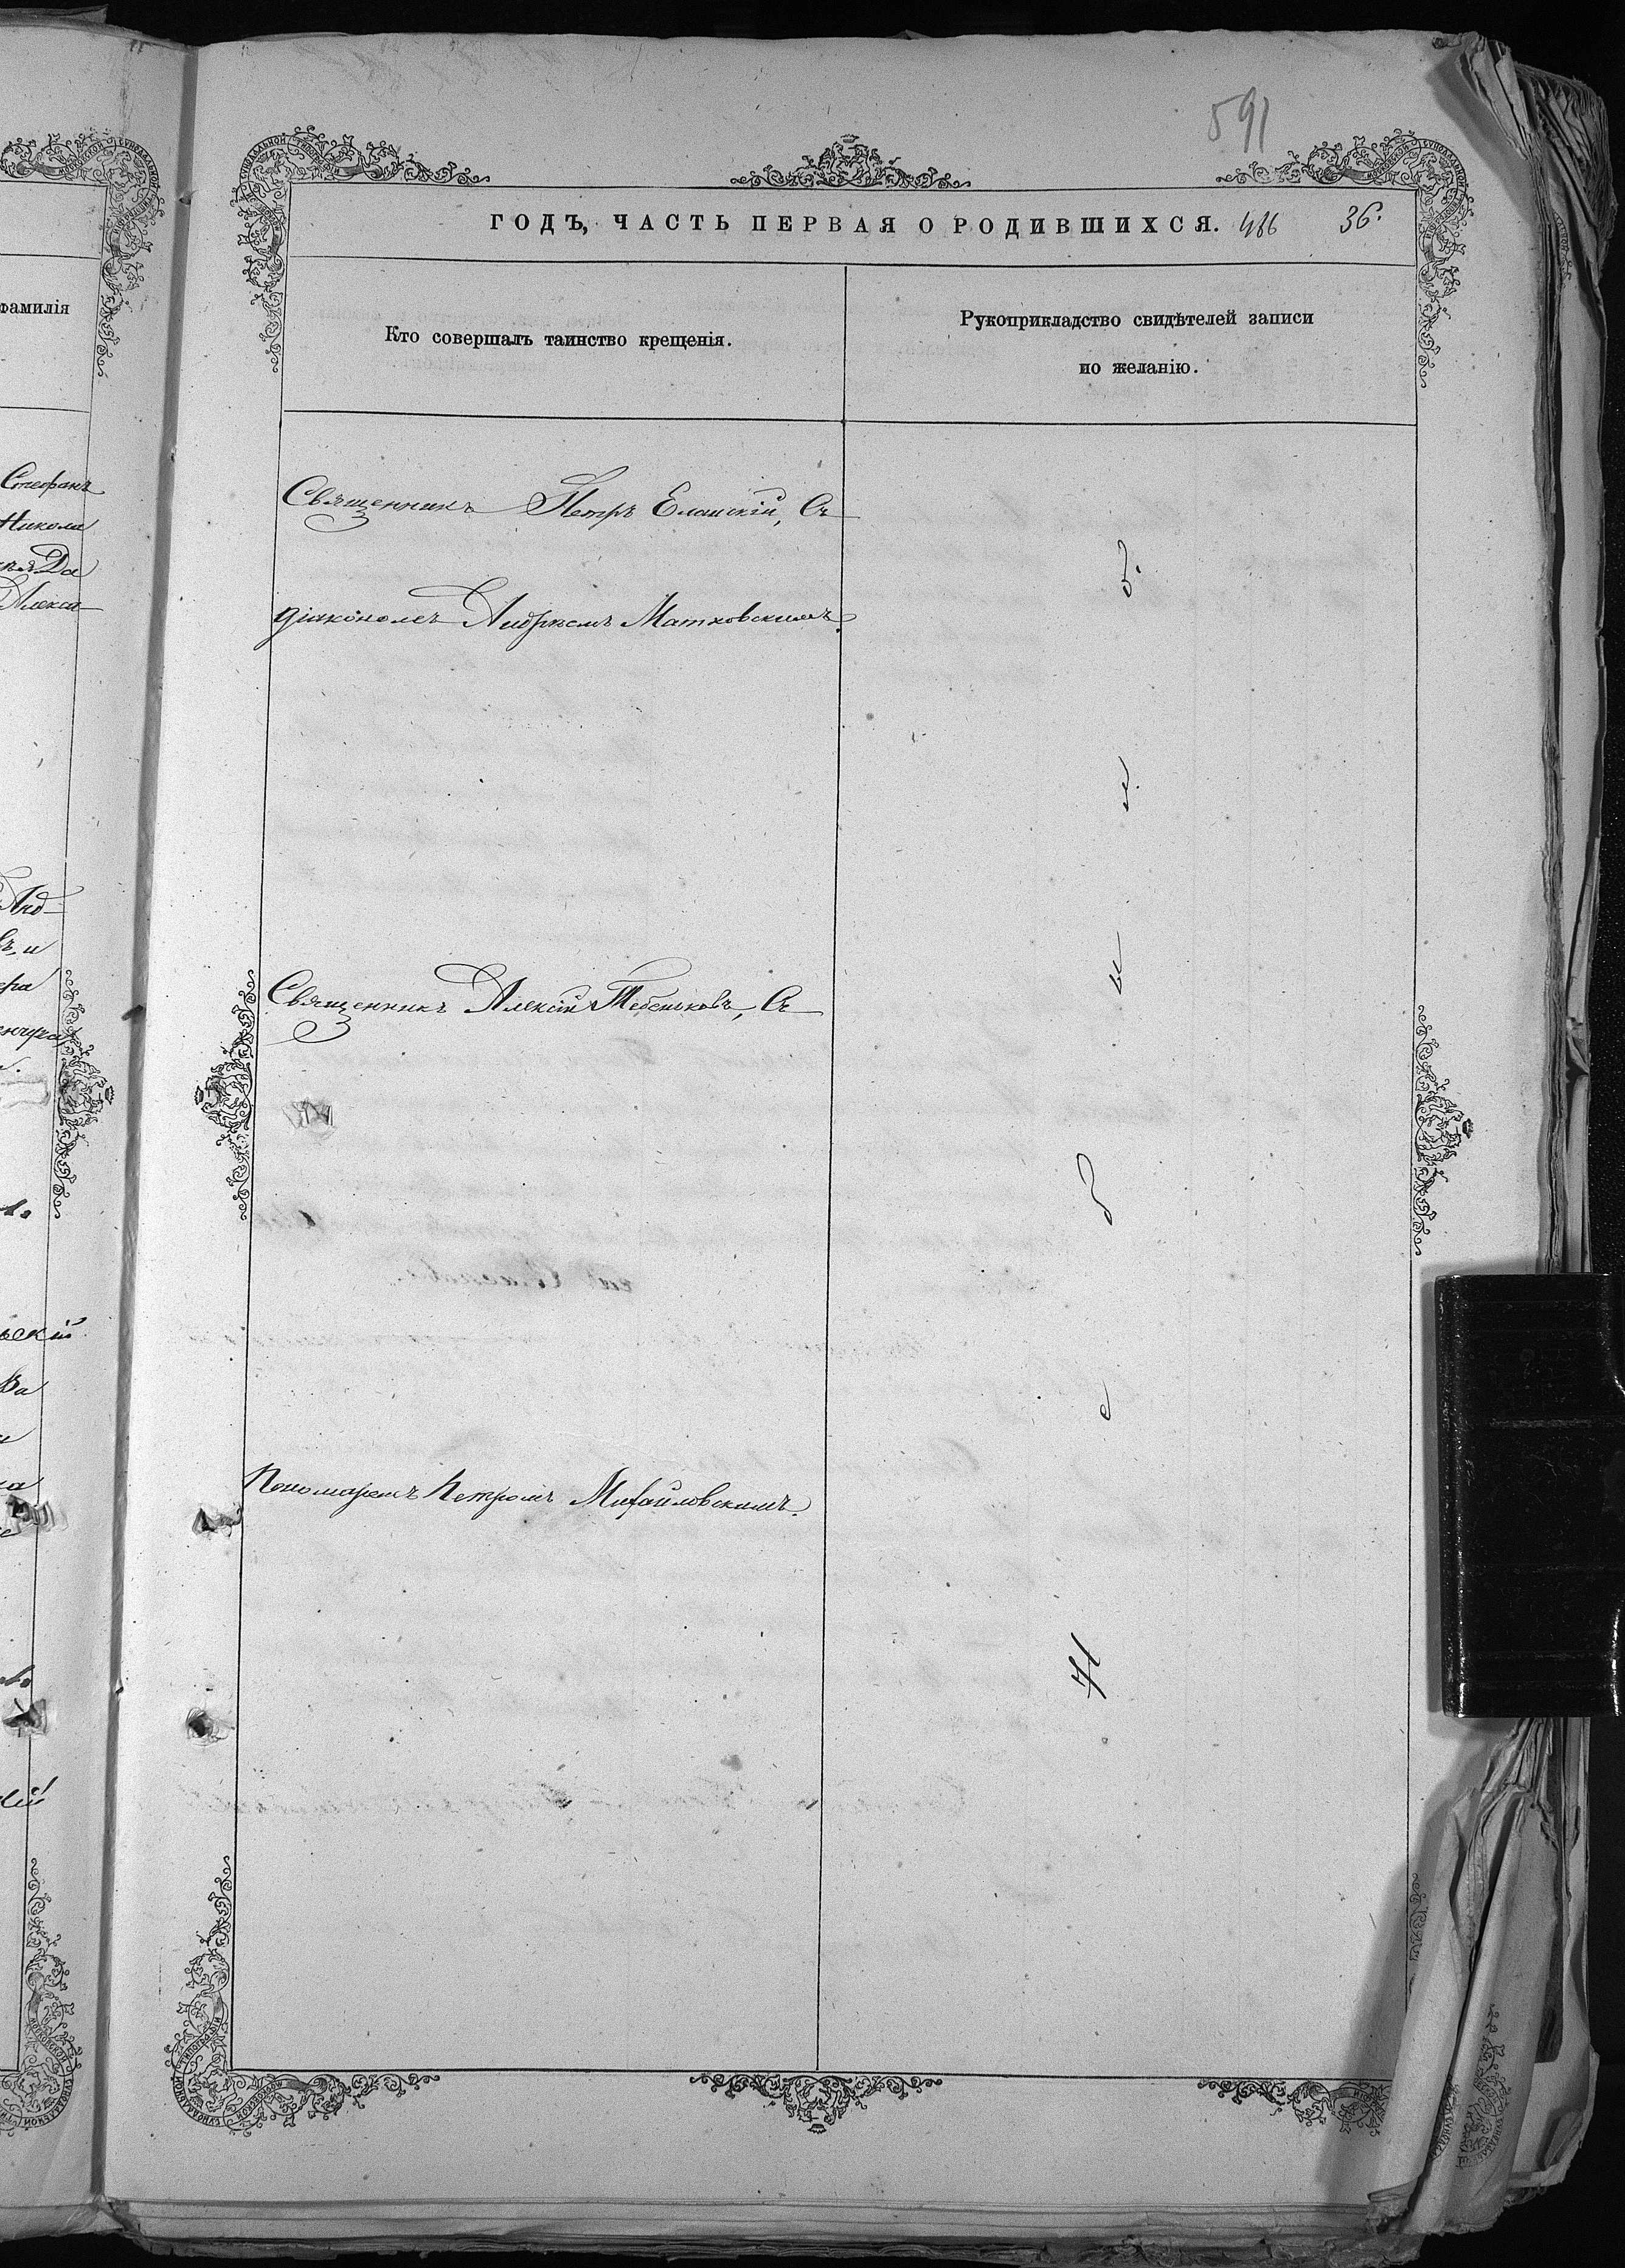 591
ГОДЪ, ЧАСТЬ ПЕРВАЯ О РОДИВШИХСЯ. 486 36.
фамилія
Кто совершалъ таинство крещенія.
Рукоприкладство свидѣтелей записи
по желанію.
Стефанъ
Никола
Да
Алекса
Священникъ Петръ Еланскій, Съ
діакономъ Андреемъ Матховскимъ.
Анд-
въ и
Священникъ Алексій Тебеньковъ, Съ
Пономаремъ Петромъ Михайловскимъ.